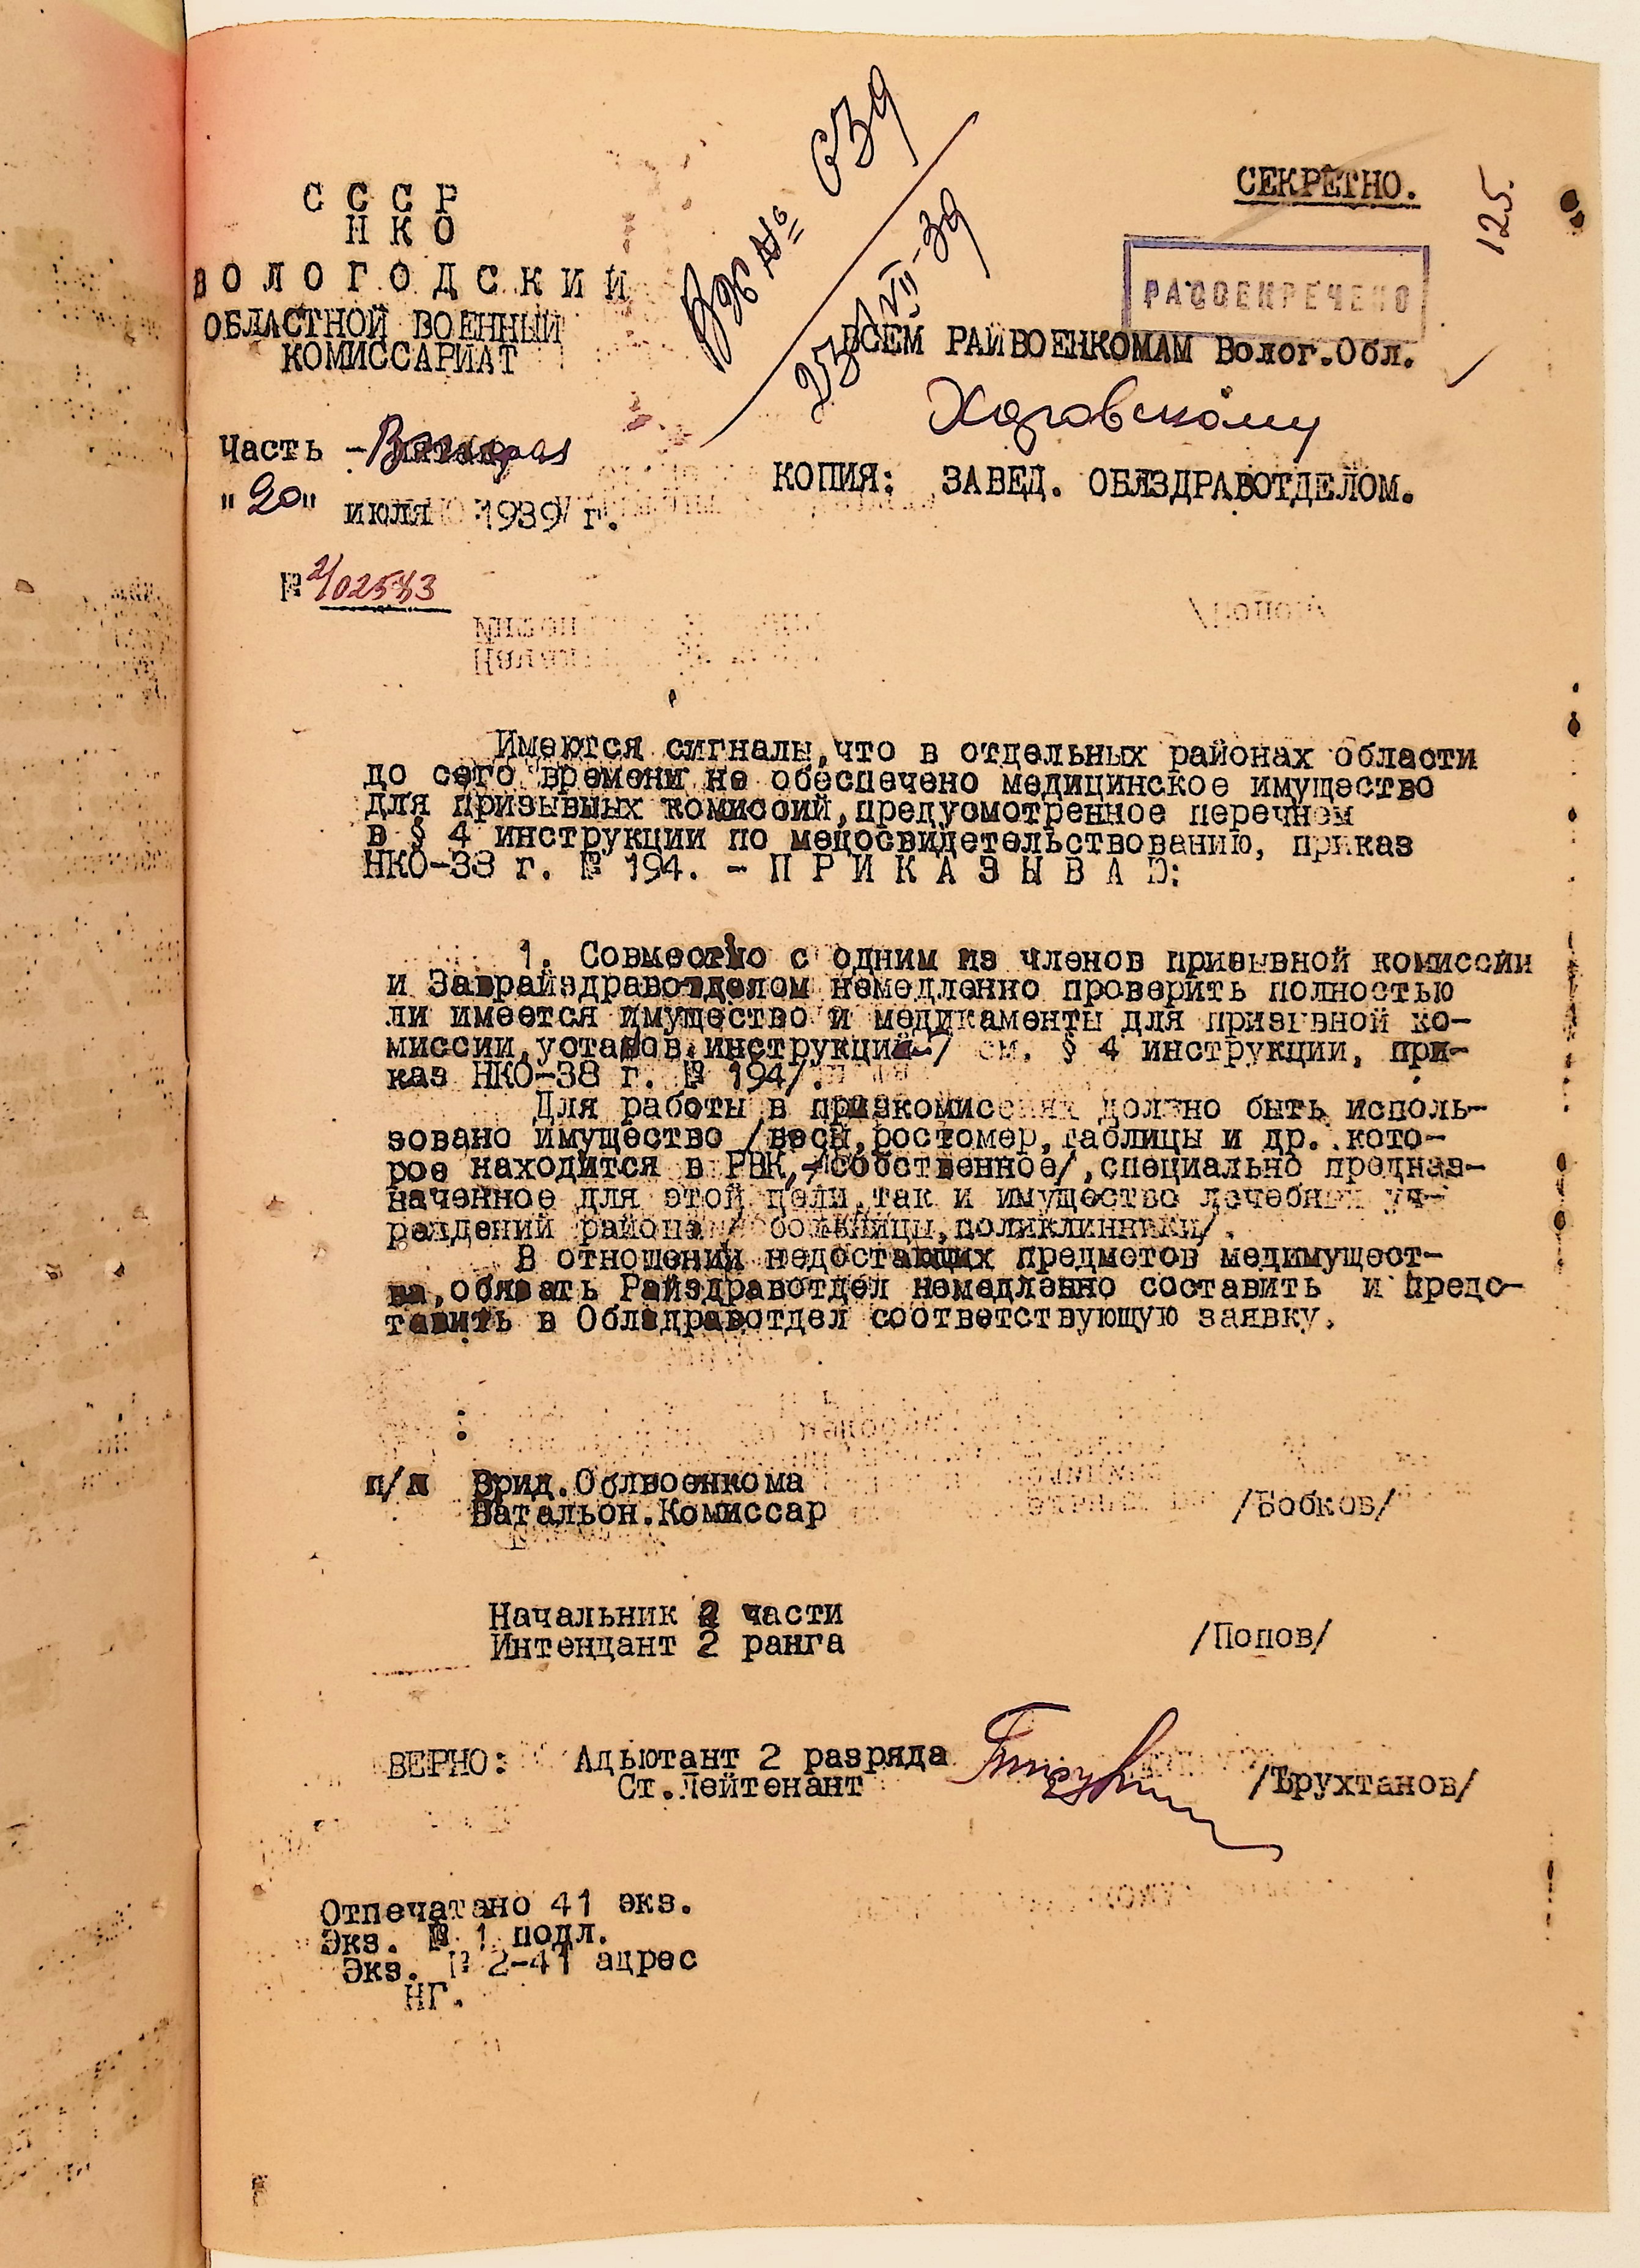 Вх № 639
25/VII-39
СЕКРЕТНО.
125.
РАССЕКРЕЧЕНО
С С С Р
Н К О
В О Л О Г О Д С К И Й
ОБЛАСТНОЙ ВОЕННЫЙ
КОМИССАРИАТ
ВСЕМ РАЙВОЕНКОМАМ Волог.Обл.
Харовскому
Часть -
"20" июля 1939 г.
КОПИЯ: ЗАВЕД. ОБЛЗДРАВОТДЕЛОМ.
№ 2/02583
Имеются сигналы,что в отдельных районах области
до сего времени не обеспечено медицинское имущество
для призывных комиссий,предусмотренное перечнем
в § 4 инструкции по медосвидетельствованию, приказ
НКО-38 г. № 194. - П Р И К А З Ы В А Ю:
1. Совместно с одним из членов призывной комиссии
и Заврайздравотделом немедленно проверить полностью
ли имеется имущество и медикаменты для призывной ко-
миссии,установ.инструкцией-/ см. § 4 инструкции, при-
каз НКО-38 г. № 194/.
Для работы в призкомиссиях должно быть исполь-
зовано имущество /весы,ростомер,таблицы и др. кото-
рое находится в РВК,-/собственное/,специально предназ-
наченное для этой цели,так и имущество лечебных уч-
реждений района / больницы,поликлиники/.
В отношении недостающих предметов медимущест-
ва,обязать Райздравотдел немедленно составить и предс-
тавить в Облздравотдел соответствующую заявку.
п/п Врид.Облвоенкома
Батальон.Комиссар /Бобков/
Начальник 2 части
Интендант 2 ранга /Попов/
ВЕРНО: Адьютант 2 разряда
Ст.Лейтенант /Брухтанов/
Отпечатано 41 экз.
Экз. № 1 подл.
Экз. № 2-41 адрес
НГ.